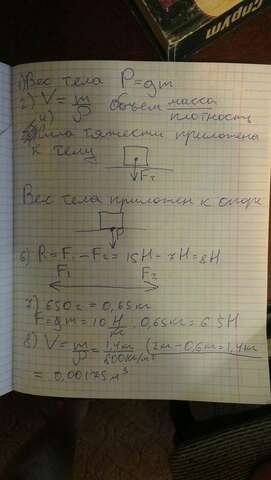 Спрут
1) Вес тела P=gm
2) V = m/ρ объем масса плотность
4)
Сила тяжести приложена
к телу
Fт
Вес тела приложен к опоре
P
6) R = F₁ - F₂ = 15Н - 7Н = 8Н
F₁ F₂
7) 650г = 0,65кг
F = gm = 10 Н/кг · 0,65кг = 6.5Н
8) V = m/ρ = 1,4кг/800кг/м³ (2кг - 0,6кг = 1,4кг
= 0,00175м³